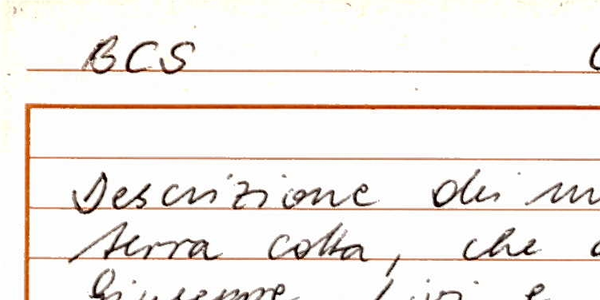 BCS
Descrizione dei
terra cotta, che
Giuseppe